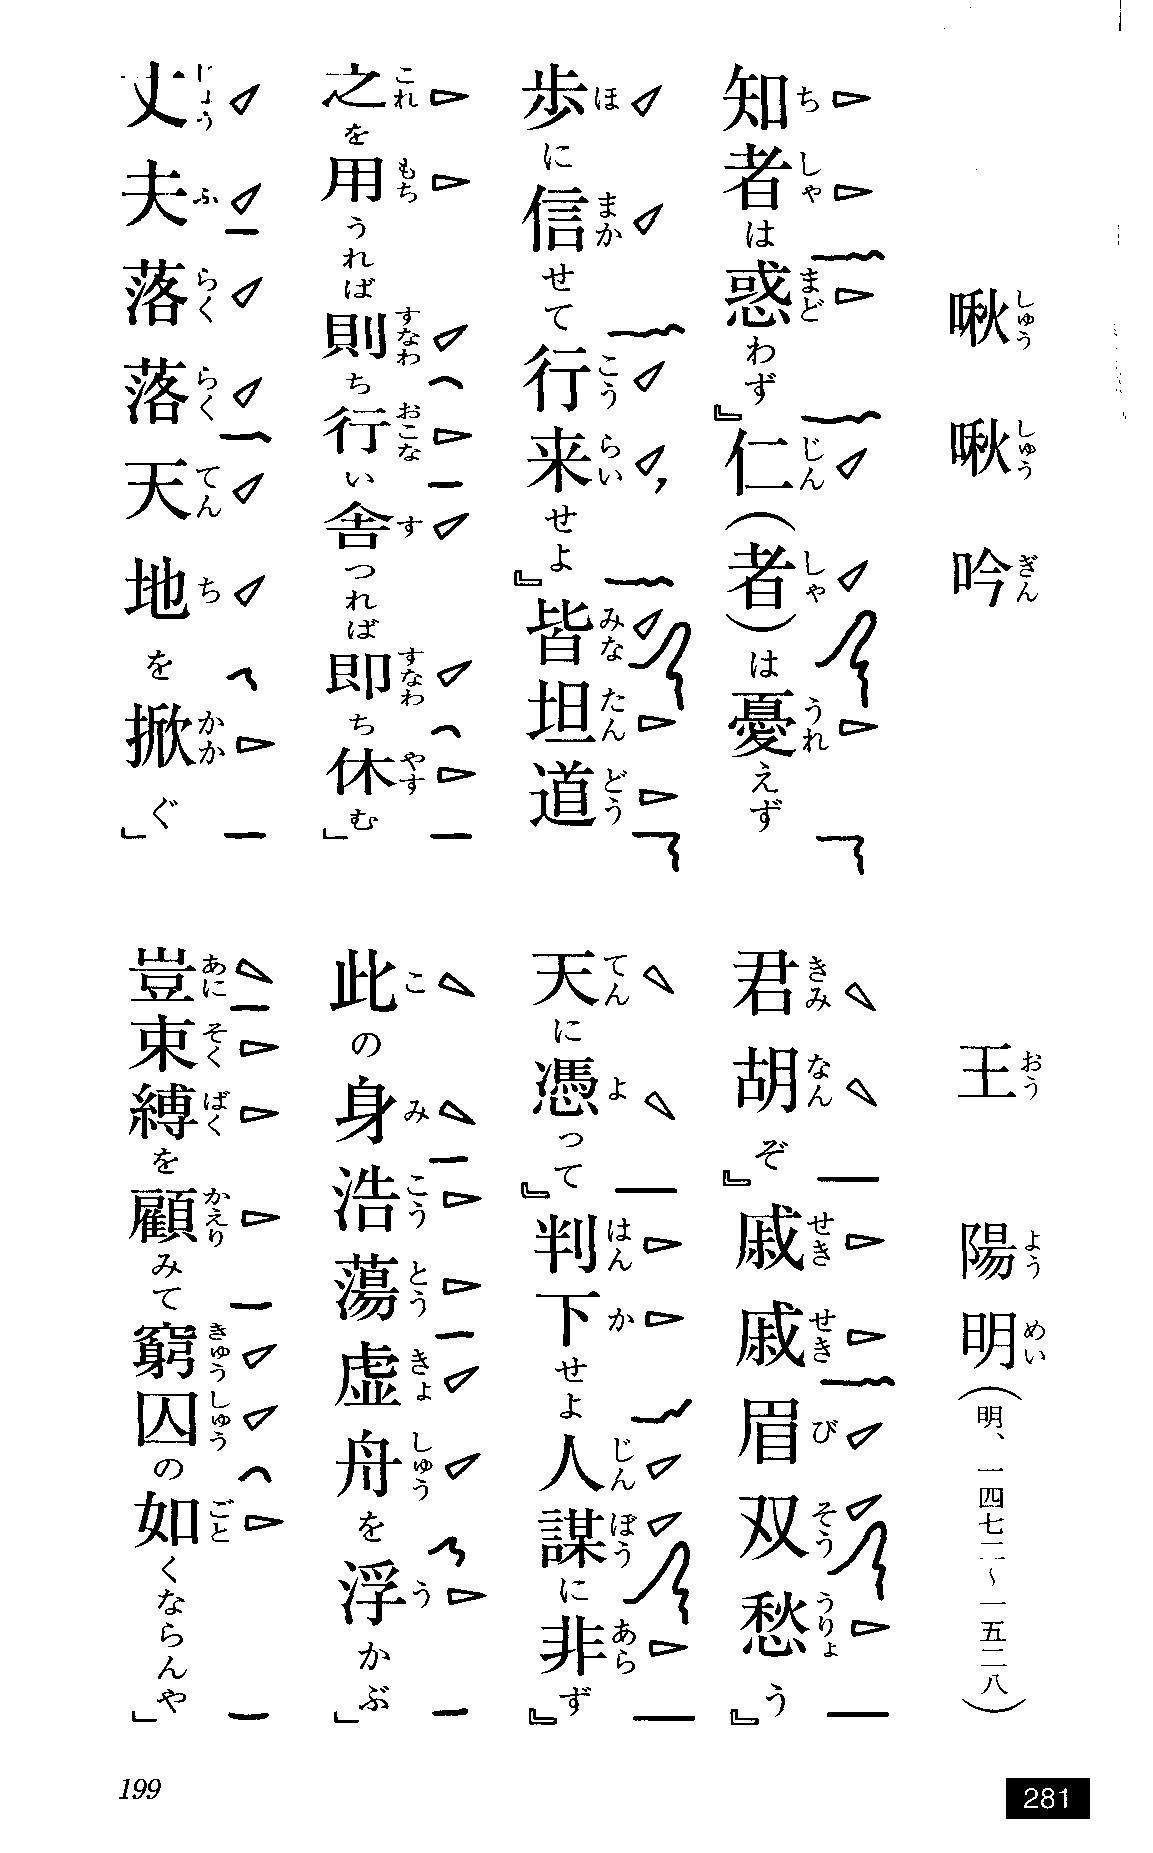 啾啾吟
王陽明(明、一四七二~一五二八)
知者は惑わず』仁(者)は憂えず
君胡ぞ』戚戚眉双愁う』
歩に信せて行来せよ』皆坦道
天に憑って』判下せよ人謀に非ず』
之を用うれば則ち行い舎つれば即ち休む」
此の身浩蕩虚舟を浮かぶ」
丈夫落落天地を掀ぐ」
豈束縛を顧みて窮囚の如くならんや」
199
281